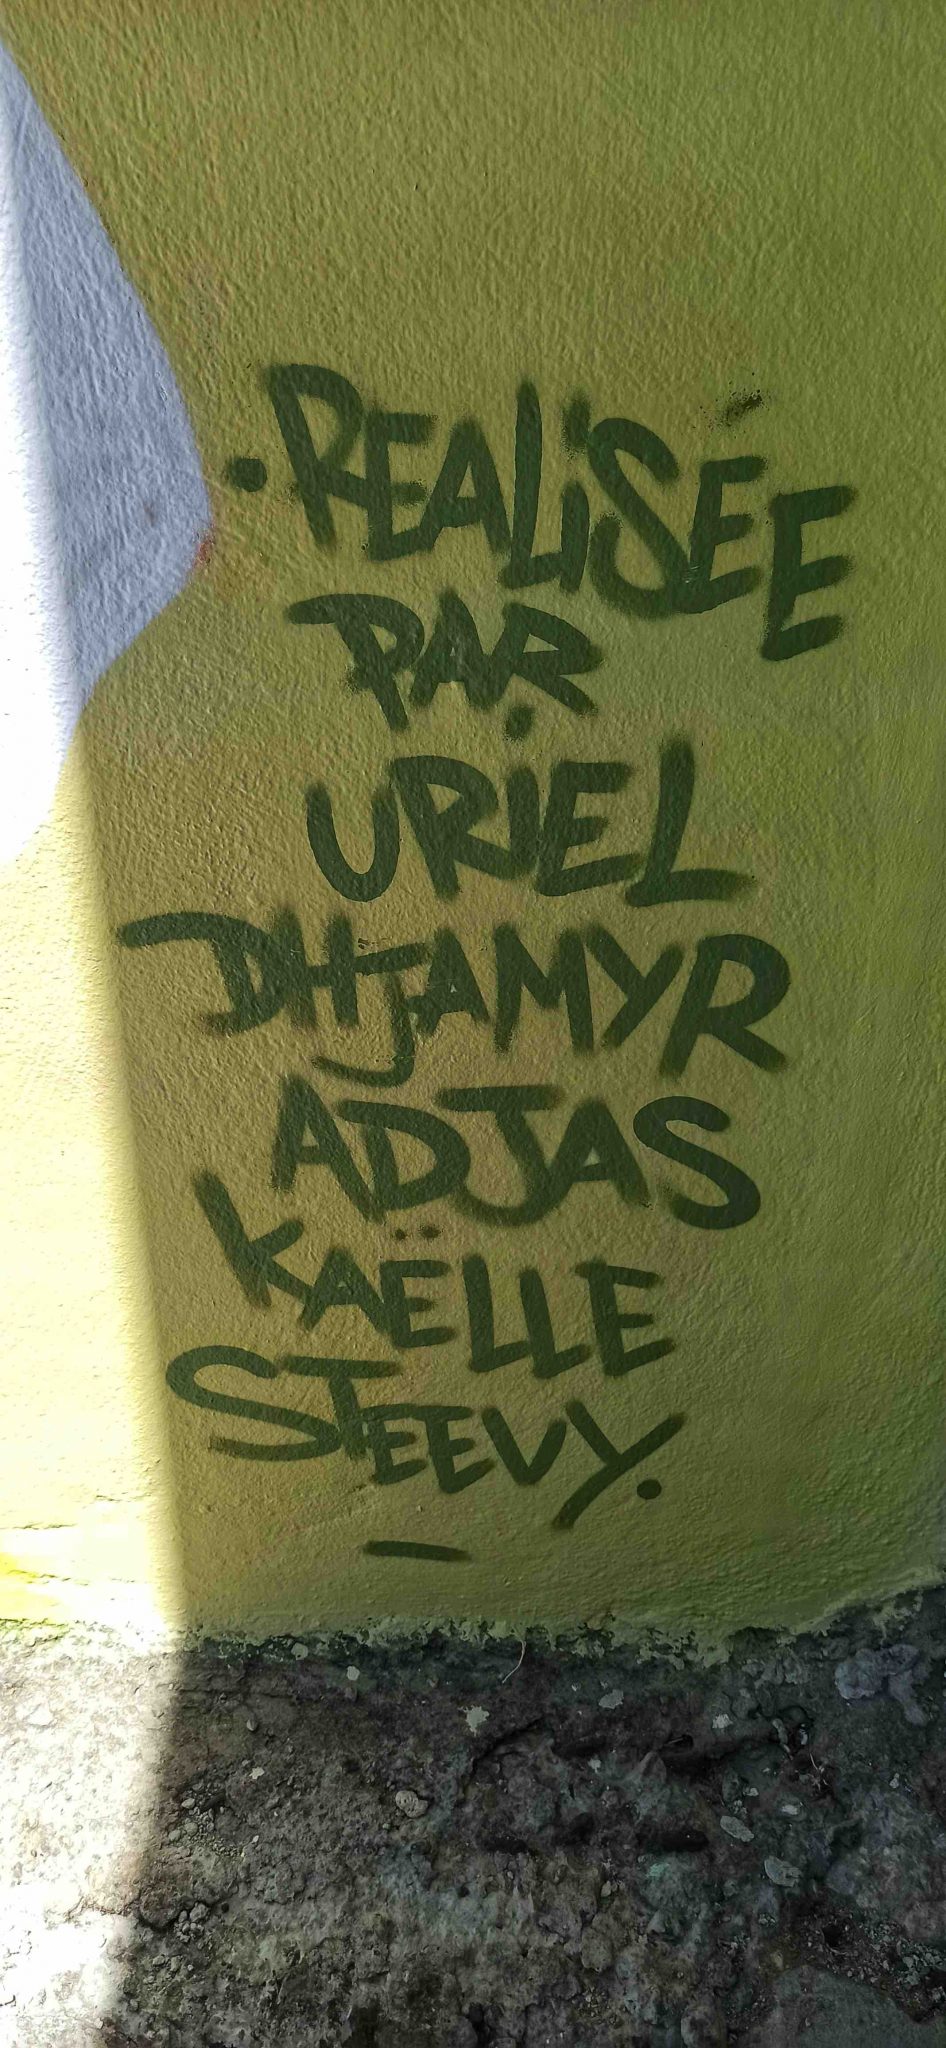 . REALISÉE
PAR.
URIEL
DHJAMYR
ADJAS
KAËLLE
STEEVY.